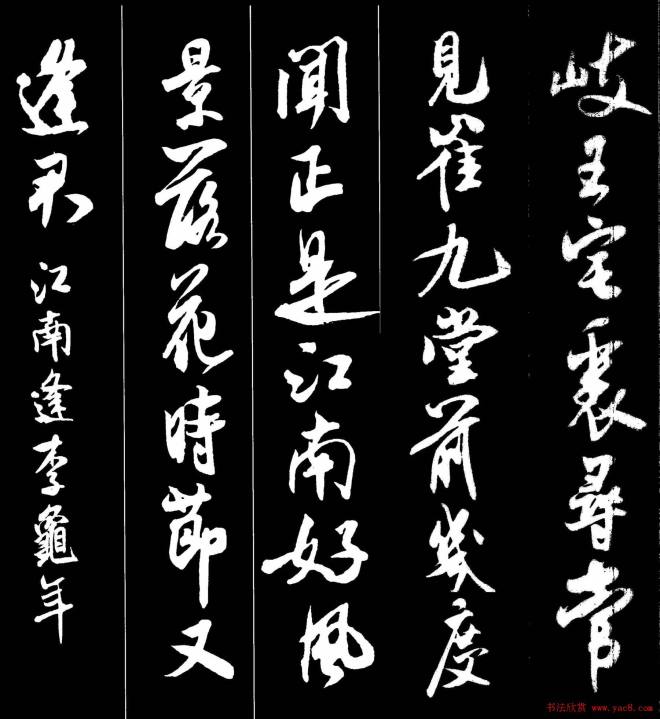 岐王宅裏尋常
見崔九堂前幾度
聞正是江南好風
景落花時節又
逢君 江南逢李龜年
书法欣赏 www.yac8.com